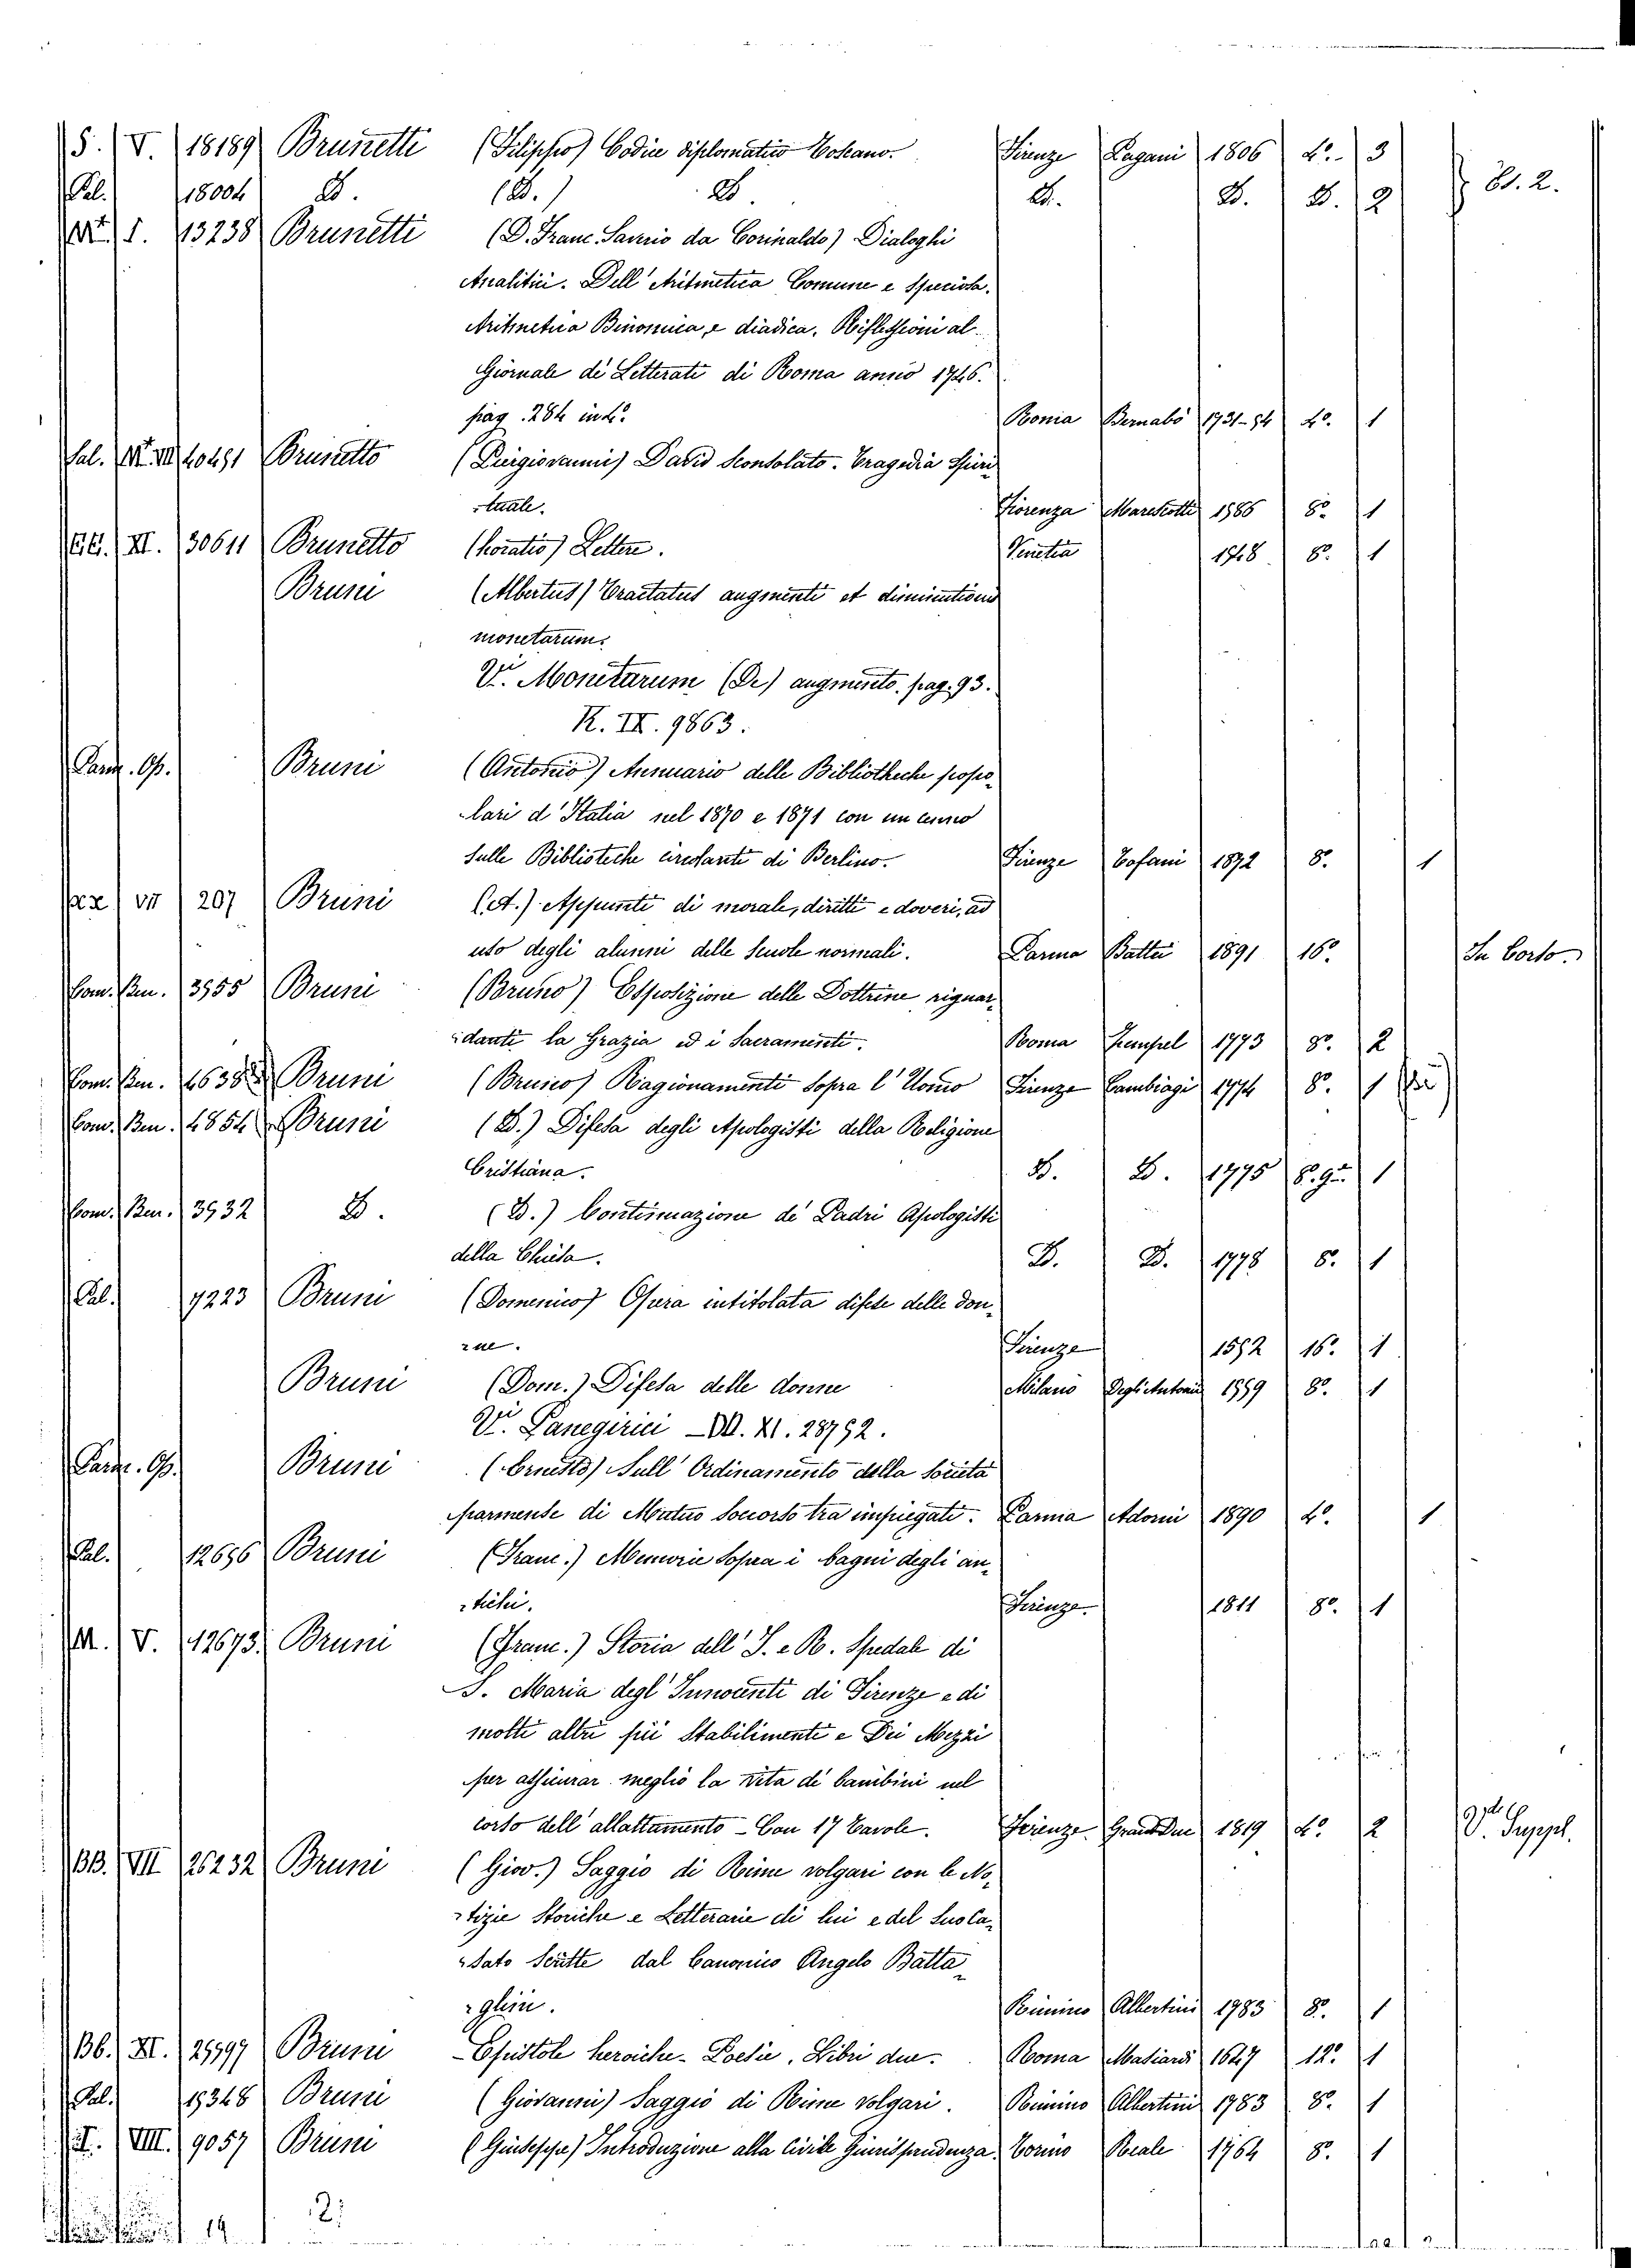 S. V. 18189 Brunetti (Filippo) Codice diplomatico Toscano. Firenze Pagani 1806 4.° 3
Pal. 18004 D. (D.) D. D. D. D. 2 D. 2.
I. 13238 Brunetti (D. Franc. Saverio da Corinaldo) Dialoghi
Analitici. Dell' Aritmetica Comune e Speciosa.
Aritmetica Binomica, e diadica. Riflessioni al
Giornale di Letterati di Roma anno 1746.
pag. 284 in 4.° Roma Bernabò 1731-54 4.° 1
Pal. 10491 Brunetto (Piergiovanni) David Sconsolato. Tragedia Spiri
tuale. Fiorenza Marescotti 1586 8.° 1
XI. 30611 Brunetto (horatio) Lettere. Venetia 1548 8.° 1
Bruni (Albertus) Tractatus augmenti et diminutionis
monetarum.
V.i Monetarum (De) augmento. pag. 93.
K. IX. 9863.
Parm. Op. Bruni (Antonio) Annuario delle Bibliotheche popo-
lari d'Italia nel 1870 e 1871 con un cenno
sulle Biblioteche circolanti di Berlino. Firenze Tofani 1872 8.° 1
VII 207 Bruni (A.) Appunti di morale, diritti e doveri, ad
uso degli alunni delle Scuole normali. Parma Battei 1891 16.° In Corso.
Com. Ben. 3955 Bruni (Bruno) Esposizione delle Dottrine riguar-
danti la Grazia ed i Sacramenti. Roma Zempel 1773 8.° 2
Com. Ben. 4638 Bruni (Bruno) Ragionamenti sopra l'Uomo Firenze Cambiagi 1774 8.° 1
Com. Ben. 4854 Bruni (D.) Difesa degli Apologisti della Religione
Cristiana. D. D. 1775 8.° 1
Com. Ben. 3932 D. (D.) Continuazione de' Padri Apologisti
della Chiesa. D. D. 1778 8.° 1
Pal. 7223 Bruni (Domenico) Opera intitolata difese delle don-
ne. Firenze 1552 16.° 1
Bruni (Dom.) Difesa delle donne Milano Degli Antonii 1559 8.° 1
V.i Panegirici - XI. 28752.
Parm. Op. Bruni (Ernesto) Sull' Ordinamento della Società
parmense di Mutuo Soccorso tra impiegati. Parma Adorni 1890 4.° 1
Pal. 12656 Bruni (Franc.) Memorie sopra i bagni degli an-
tichi. Firenze. 1811 8.° 1
M. V. 12673. Bruni (Franc.) Storia dell' I. e R. Spedale di
S. Maria degl' Innocenti di Firenze e di
molti altri pii Stabilimenti e Dei Mezzi
per assicurar meglio la vita di bambini nel
corso dell' allattamento - Con 17 Tavole. Firenze. Granduc 1819 4.° 2 V. Suppl.
BB. VII 26232 Bruni (Giov.) Saggio di Rime volgari con le No-
tizie Storiche e Letterarie di lui e del suo Ca-
sato Scritte dal Canonico Angelo Batta-
glini. Rimino Albertini 1783 8.° 1
Bb. XI. 29597 Bruni - Epistole heroiche - Poesie. Libri due. Roma Masiardi 1647 12.° 1
Pal. 15348 Bruni (Giovanni) Saggio di Rime volgari. Rimino Albertini 1783 8.° 1
VIII. 9057 Bruni (Giuseppe) Introduzione alla Civile Giurisprudenza. Torino Reale 1764 8.° 1
14 2.